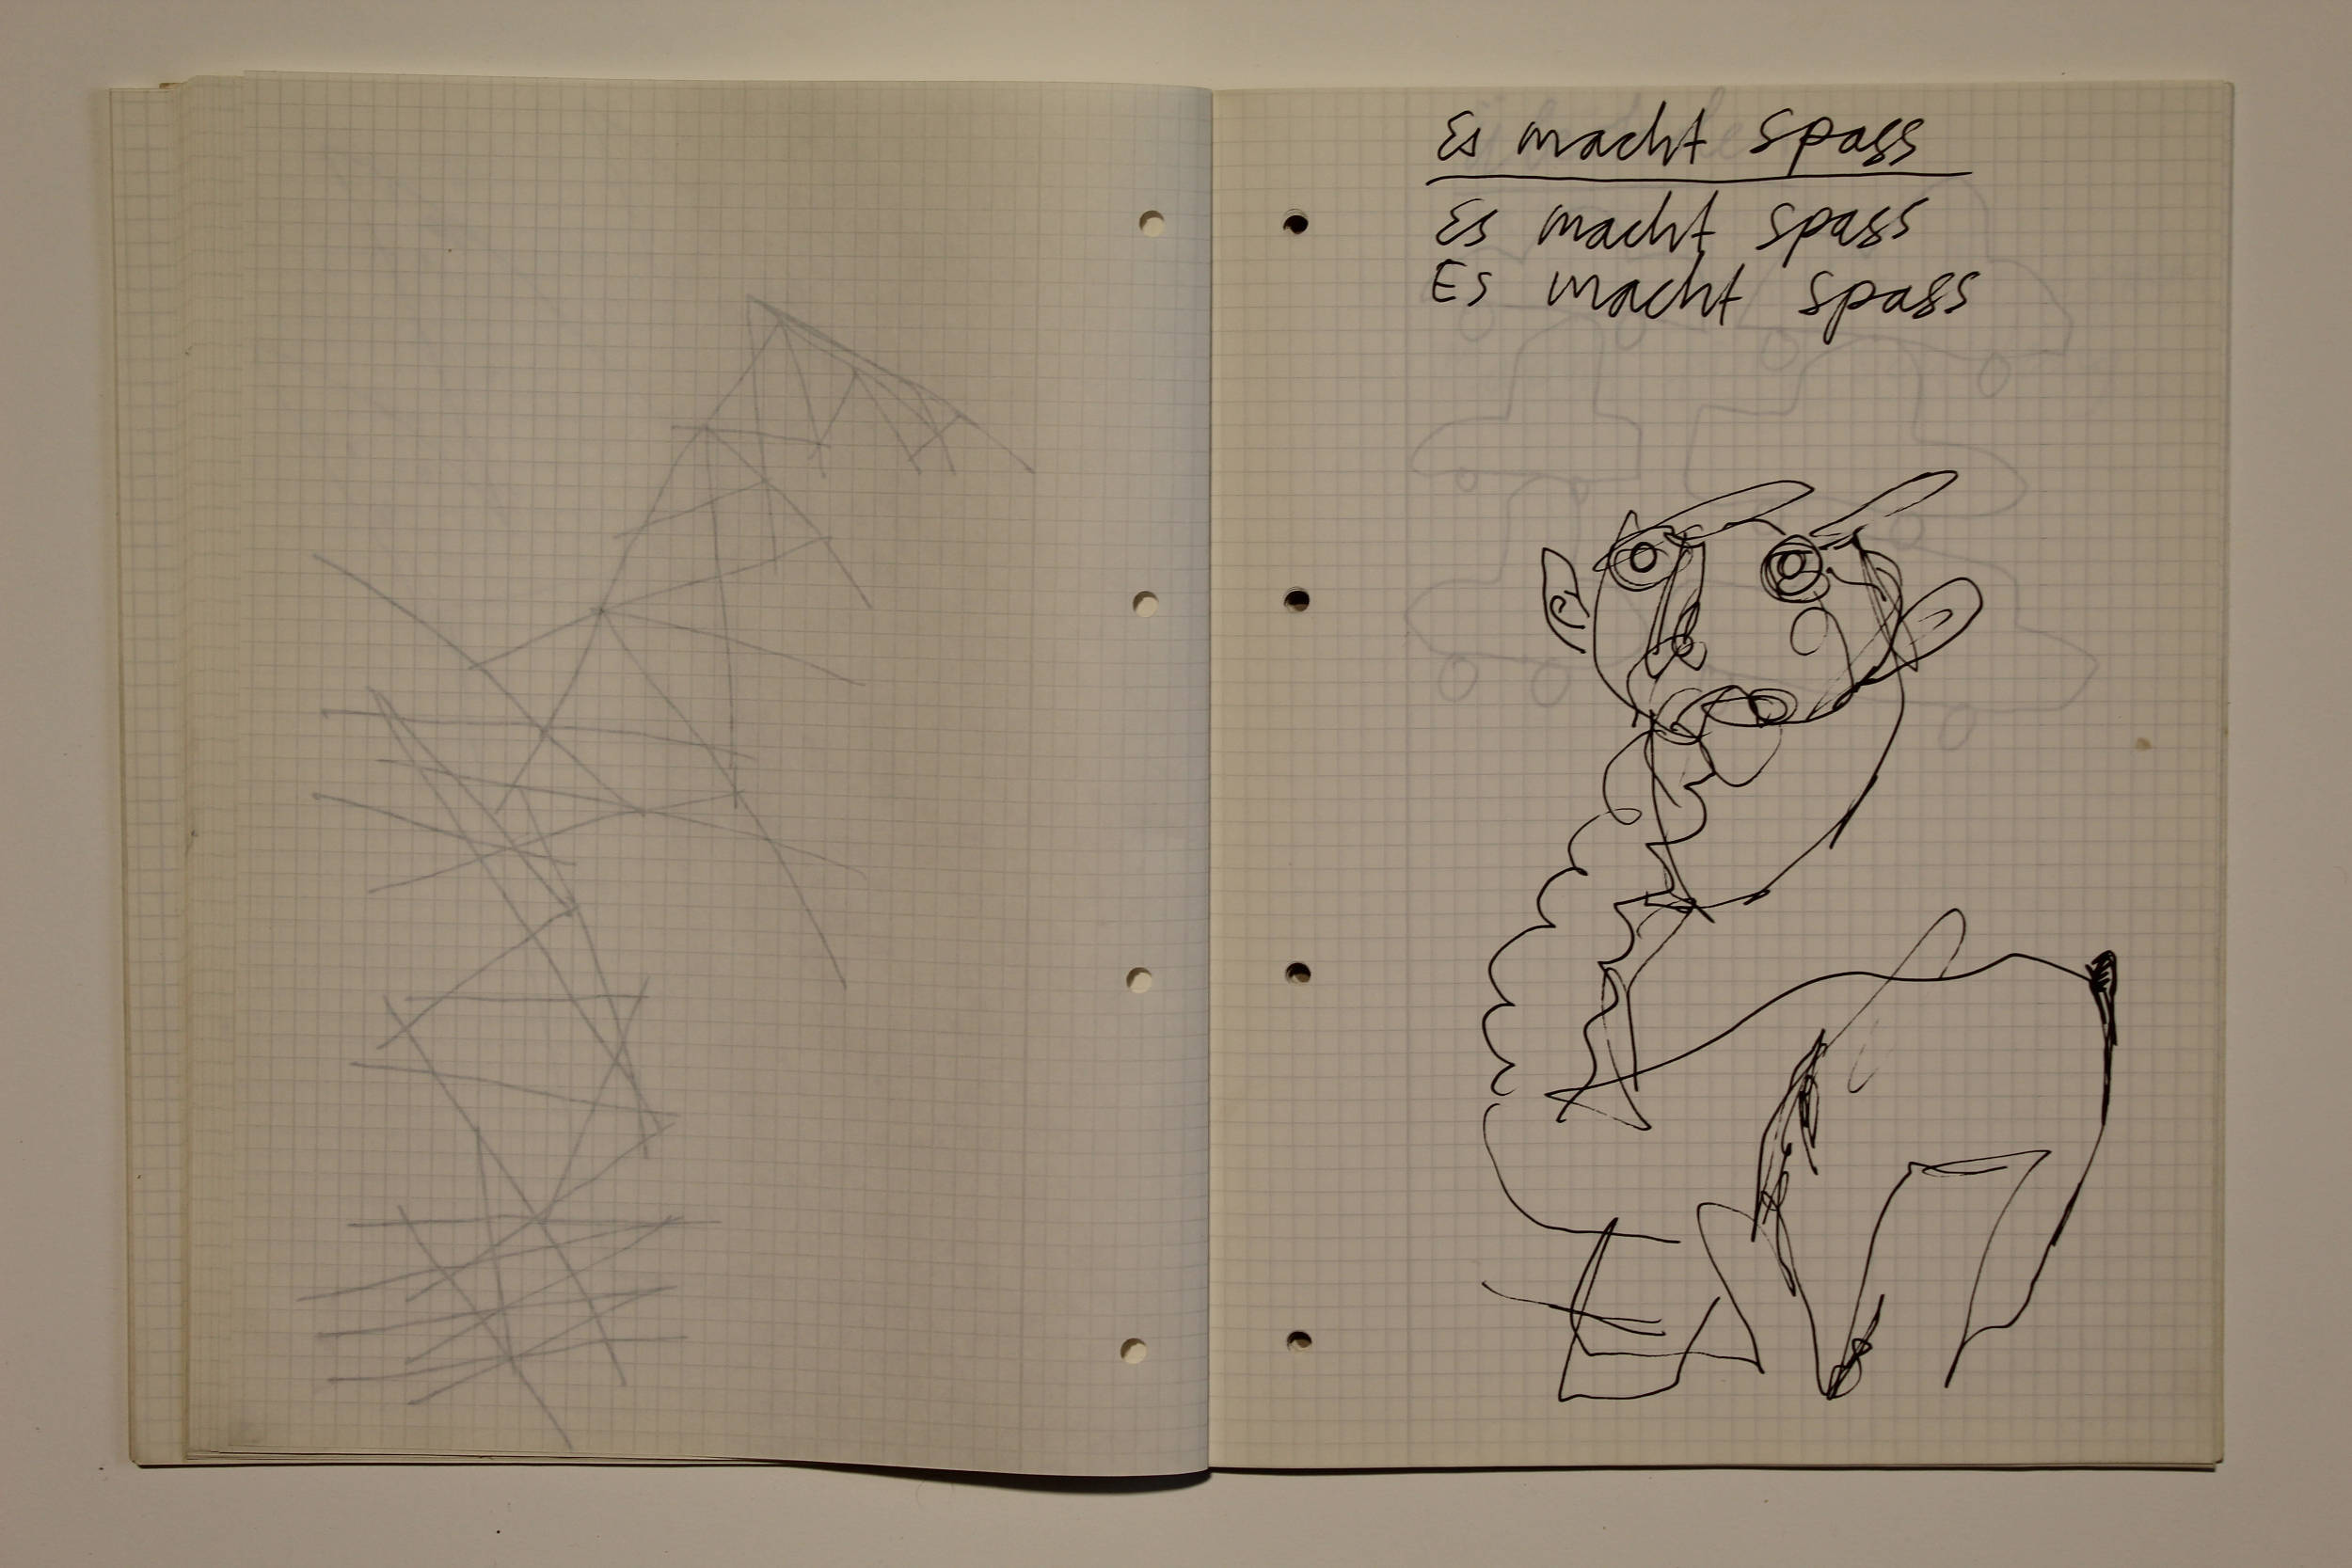 Es macht spass
Es macht spass
Es macht spass